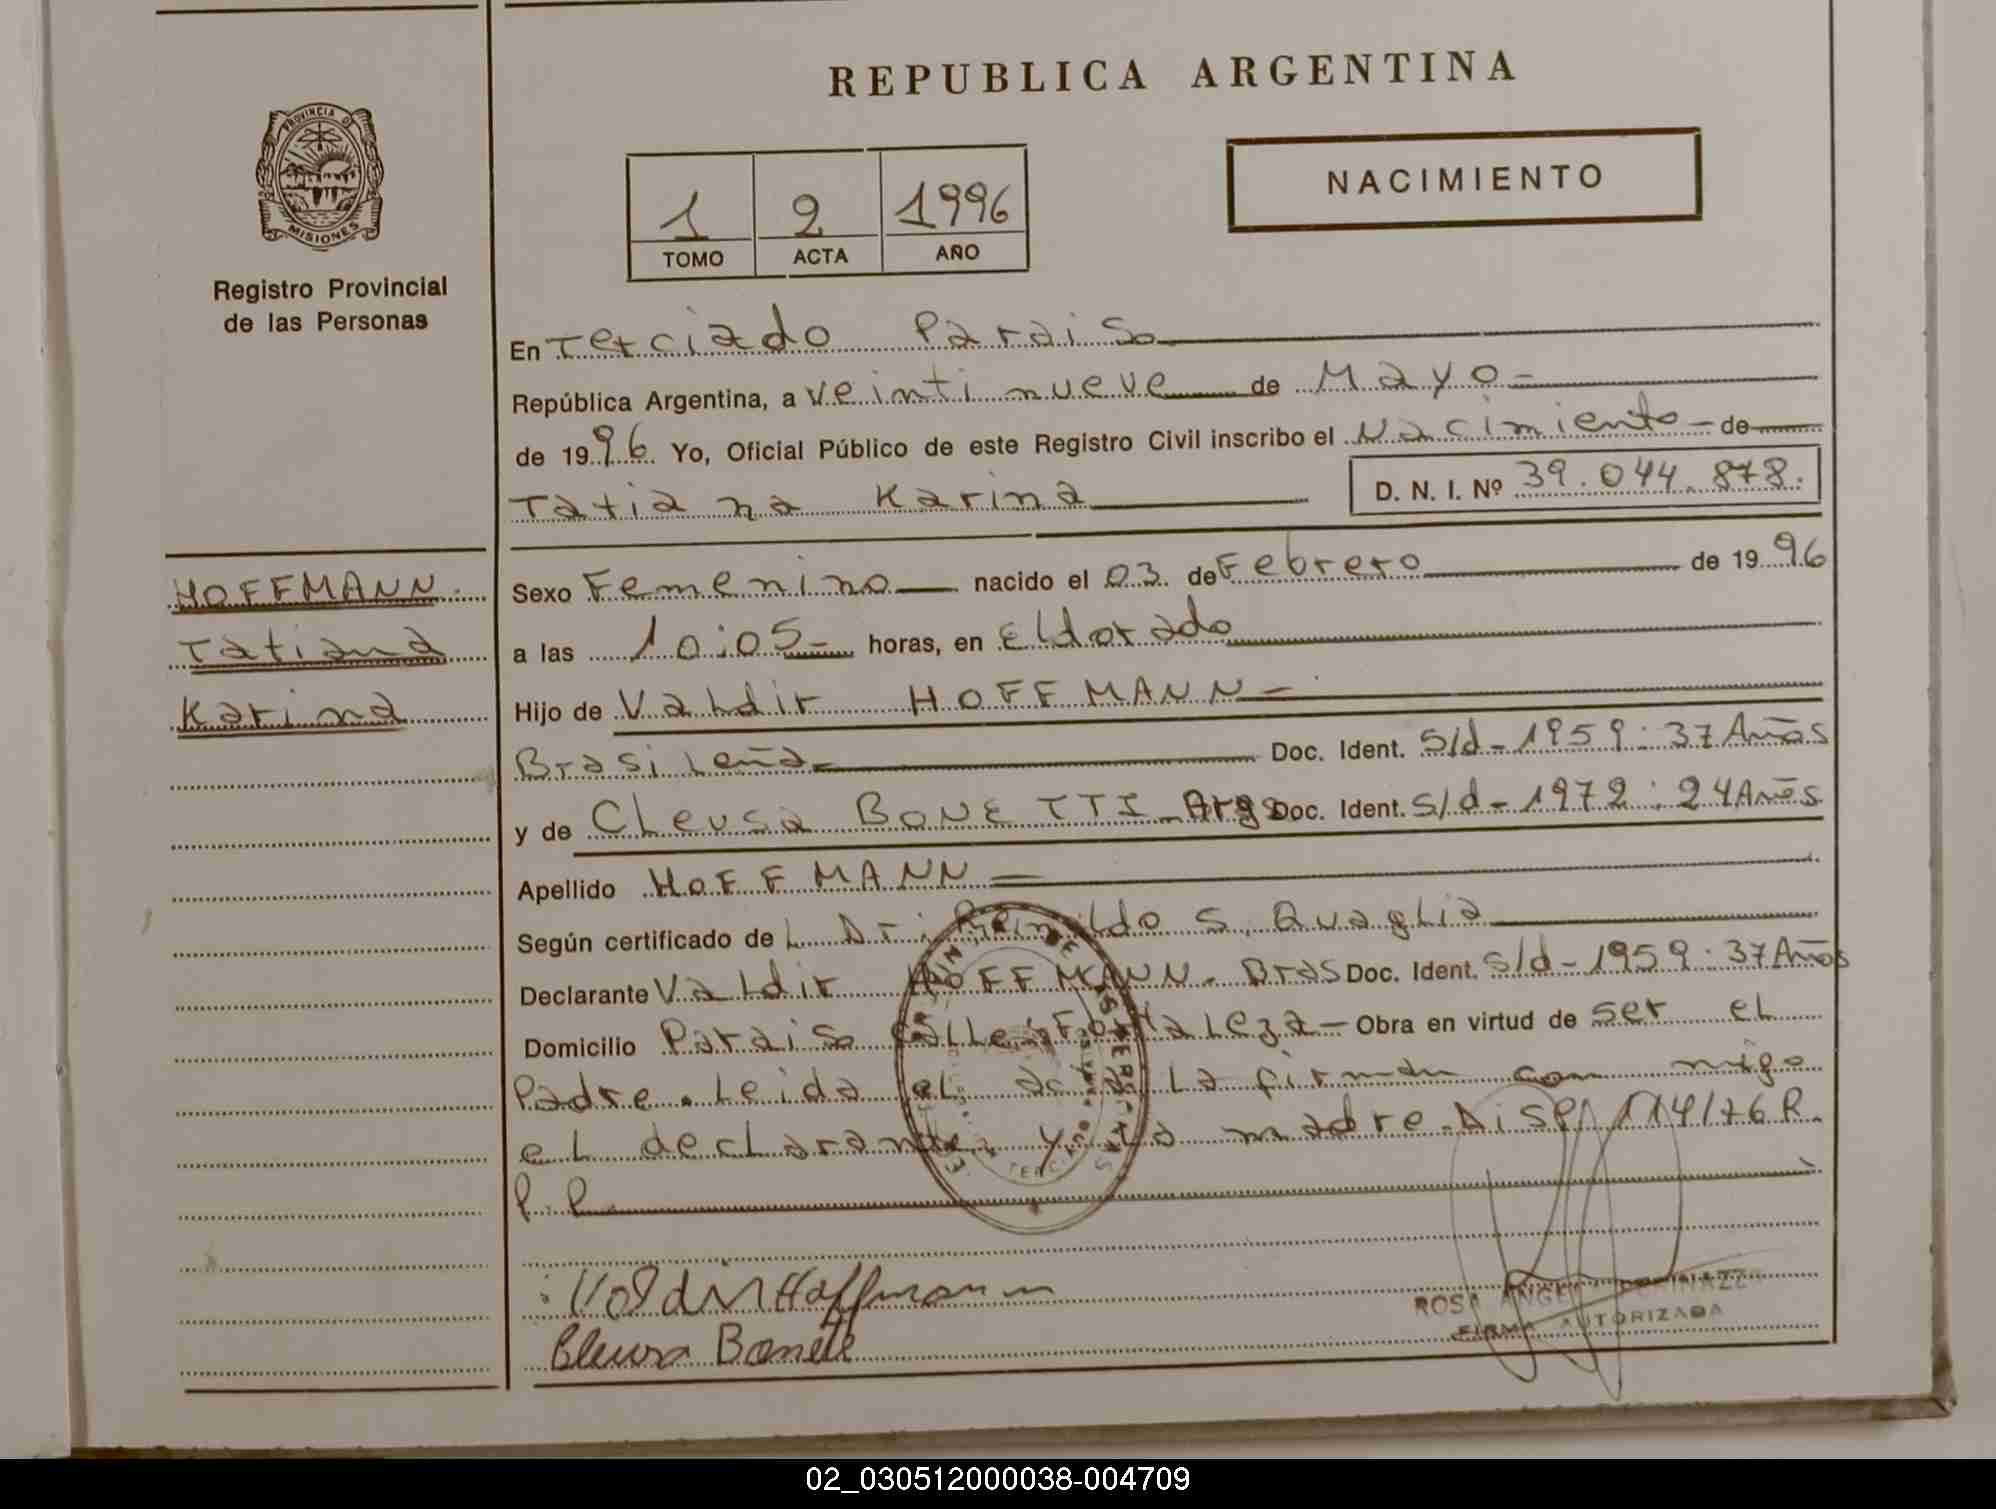 REPUBLICA ARGENTINA
PROVINCIA D
MISIONES
Registro Provincial
de las Personas
NACIMIENTO
1 2 1996
TOMO ACTA AÑO
En Terciado Paraiso
República Argentina, a veinti nueve de Mayo-
de 1996 Yo, Oficial Público de este Registro Civil inscribo el Nacimiento - de
Tatiana Karina D. N. I. Nº 39.044.878.
HOFFMANN.
Tatiana
Karina
Sexo Femenino nacido el 03 de Febrero de 1996
a las 10:05- horas, en Eldorado
Hijo de Valdir HOFFMANN-
Brasileña- Doc. Ident. S/d-1959:37 Años
y de Cleusa BONETTI-Args Doc. Ident. S/d-1972:24 Años
Apellido HOFFMANN
Según certificado de L Dr. Reinaldo S. Quaglia
Declarante Valdir HOFFMANN. Bras Doc. Ident. S/d-1959:37 Años
Domicilio Paraiso Calle Fortaleza- Obra en virtud de ser el
Padre. Leida el acta La firman con migo
el declarante y la madre. Disp. 114/76 R.
P. P.
Valdir Hoffmann
Cleusa Bonete
ROSA
FIRMA AUTORIZADA
02_030512000038-004709